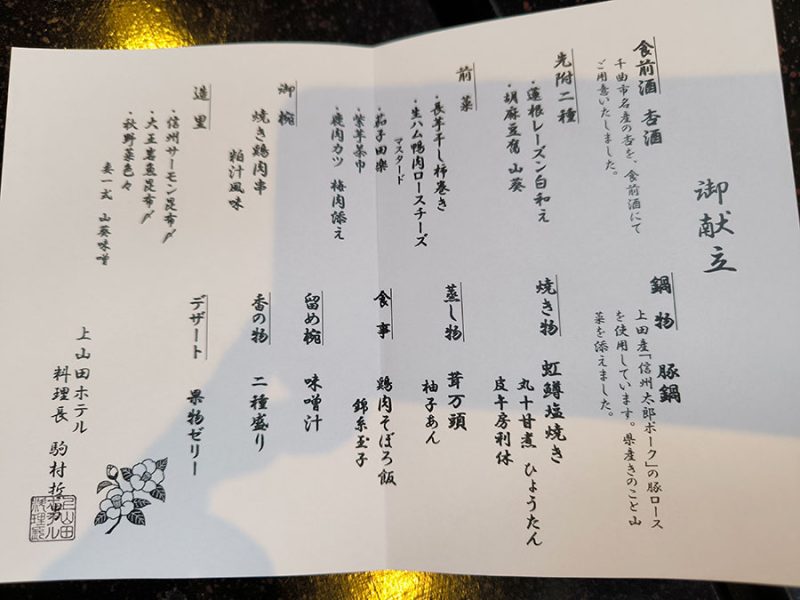 御献立
食前酒 杏酒
千曲市名産の杏を、食前酒にて
ご用意いたしました。
先附二種
・蓮根レーズン白和え
・胡麻豆腐 山葵
前菜
・長芋干し柿巻き
・生ハム鴨肉ロースチーズ
マスタード
・茄子田楽
・紫芋茶巾
・鹿肉カツ 梅肉添え
御椀
焼き鶏肉串
粕汁風味
造里
・信州サーモン昆布〆
・大王岩魚昆布〆
・秋野菜色々
妻一式 山葵味噌
鍋物 豚鍋
上田産「信州太郎ポーク」の豚ロース
を使用しています。県産きのこと山
菜を添えました。
焼き物 虹鱒塩焼き
丸十甘煮 ひょうたん
皮牛房利休
蒸し物 茸万頭
柚子あん
食事 鶏肉そぼろ飯
錦糸玉子
留め椀 味噌汁
香の物 二種盛り
デザート 果物ゼリー
上山田ホテル
料理長 駒村哲男
上山田
ホテル
料理長